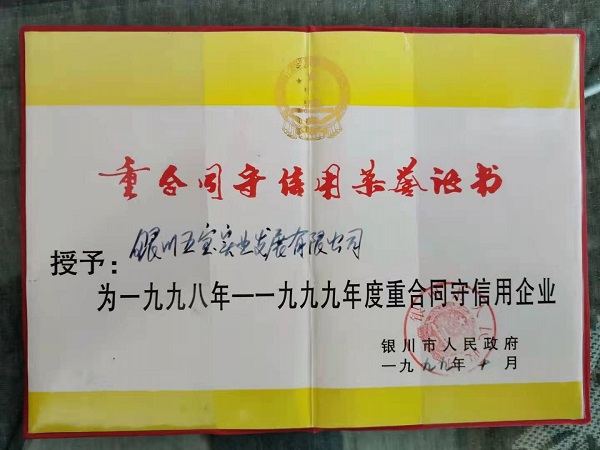 重合同守信用荣誉证书
授予：银川五宝实业发展有限公司
为一九九八年——一九九九年度重合同守信用企业
银川市人民政府
一九九九年十月